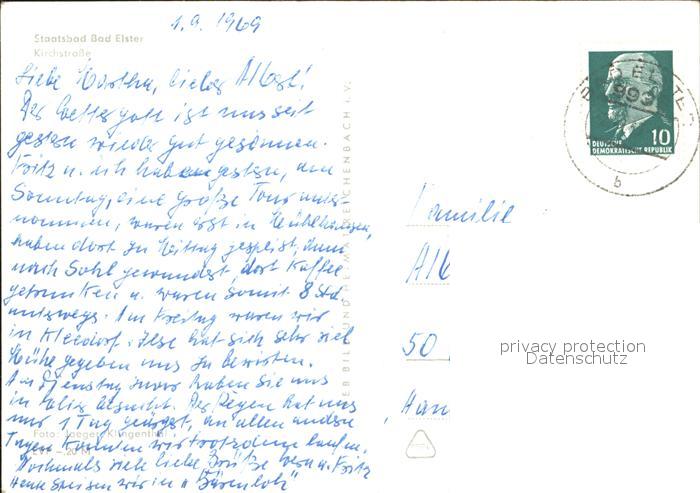 1.9.1969
Staatsbad Bad Elster
Kirchstraße
Liebe Martha, lieber
Der Wettergott ist uns seit
gestern wieder gut gesonnen.
Fritz u. ich haben gestern, am
Sonntag, eine große Tour unter-
nommen, waren erst in Mühlhausen,
haben dort zu Mittag gespeist, dann
nach Sohl gewandert, dort Kaffee
getrunken u. waren somit 8 Std
unterwegs. Am Freitag waren wir
in Ilse hat sich sehr viel
Mühe gegeben uns zu bewirten.
Am Dienstag zuvor haben Sie uns
in besucht. Der Regen hat uns
nur 1 Tag an allen anderen
Tagen konnten wir trotzdem laufen.
Nochmals viele liebe Grüße von u. Fritz
Heute speisen wir in „Bärenloh“
Foto: Jaeger, Klingenthal
VEB BILD UND HEIMAT REICHENBACH I. V.
10
DEUTSCHE
DEMOKRATISCHE REPUBLIK
BAD ELSTER
9933
b
Familie
Alb
50
Han
privacy protection
Datenschutz